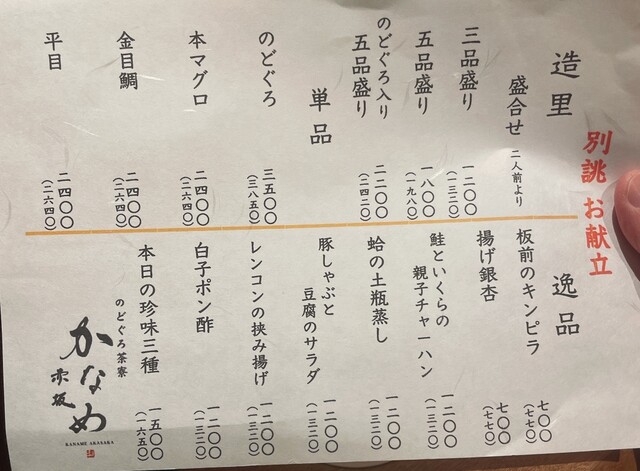 別誂 お献立
造里
盛合せ 二人前より
三品盛り 一二〇〇
(一三二〇)
五品盛り 一八〇〇
(一九八〇)
のどぐろ入り
五品盛り 二二〇〇
(二四二〇)
単品
のどぐろ 三五〇〇
(三八五〇)
本マグロ 二四〇〇
(二六四〇)
金目鯛 二四〇〇
(二六四〇)
平目 二四〇〇
(二六四〇)
逸品
板前のキンピラ 七〇〇
(七七〇)
揚げ銀杏 七〇〇
(七七〇)
鮭といくらの
親子チャーハン 一二〇〇
(一三二〇)
蛤の土瓶蒸し 一二〇〇
(一三二〇)
豚しゃぶと
豆腐のサラダ 一二〇〇
(一三二〇)
レンコンの挟み揚げ 一二〇〇
(一三二〇)
白子ポン酢 一二〇〇
(一三二〇)
本日の珍味三種 一五〇〇
(一六五〇)
のどぐろ茶寮
かなめ
赤坂
KANAME AKASAKA